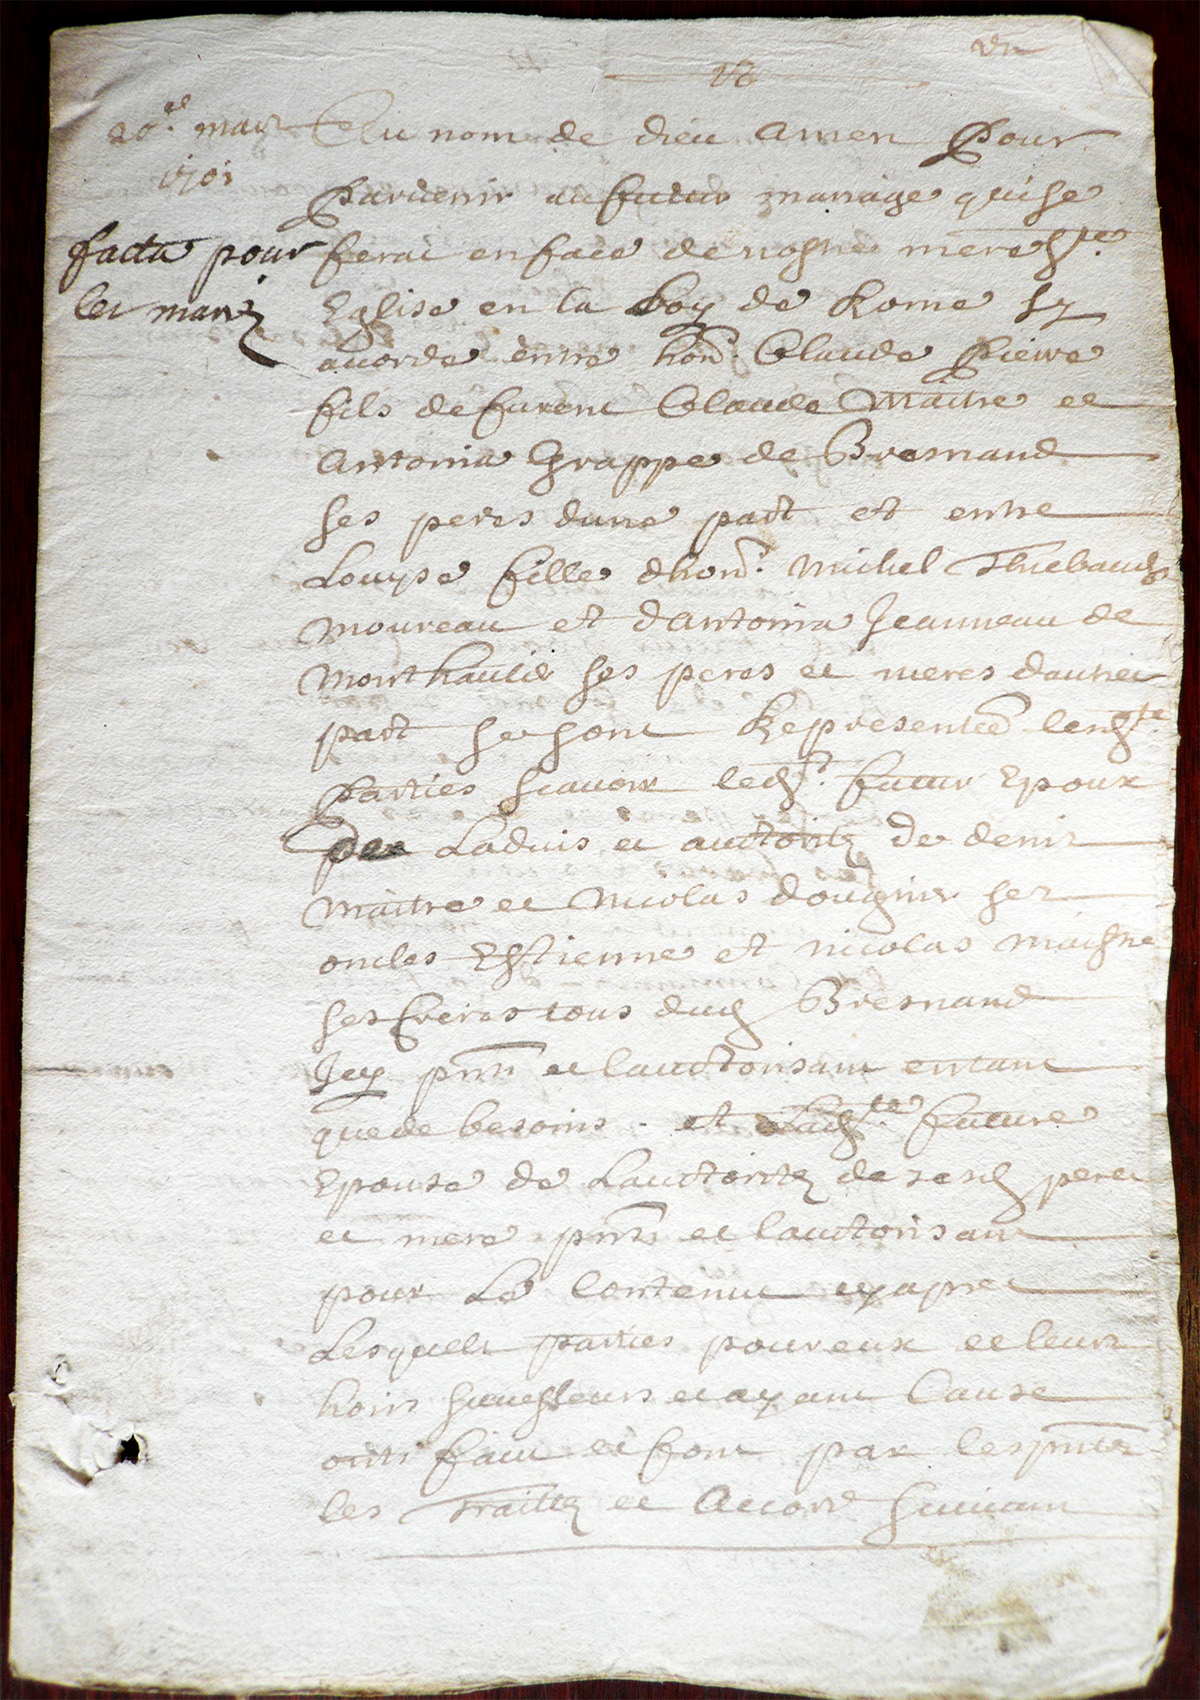 20e. mars
1701
facta pour
les mariez
Au nom de dieu amen Pour
Parvenir au futur mariage qui se
ferat en face de nostre mere Ste.
Eglise en la Loy de Rome sy
accorde entre hon. Claude Pierre
fils de furent Claude Maitre et
Antonia Grappe de Bresnand
ses peres dune part et entre
Louyse fille dhon. Michel Thiebaud
Moureau et dantonia Jeanneau de
Monthautie ses peres et meres dautre
part se sont Representée lesdte.
Parties scavoir ledt. futur Epoux
De Ladvis et auctoritez de denis
Maitre et Nicolas dougnier ses
oncles Estienne et nicolas maistre
ses freres tous dud Bresnand
Icy pnts et lauctorisant entant
que de besoins . et Ladte. future
Epouse de Lauctoritez de sesd pere
et mere pnts et lauctorisant
pour Le Contenu cy apres
Lesquels parties pour eux et leurs
hoirs successeurs et ayant Cause
onts fait et font par les pntes
les Traittez et Accord suivant